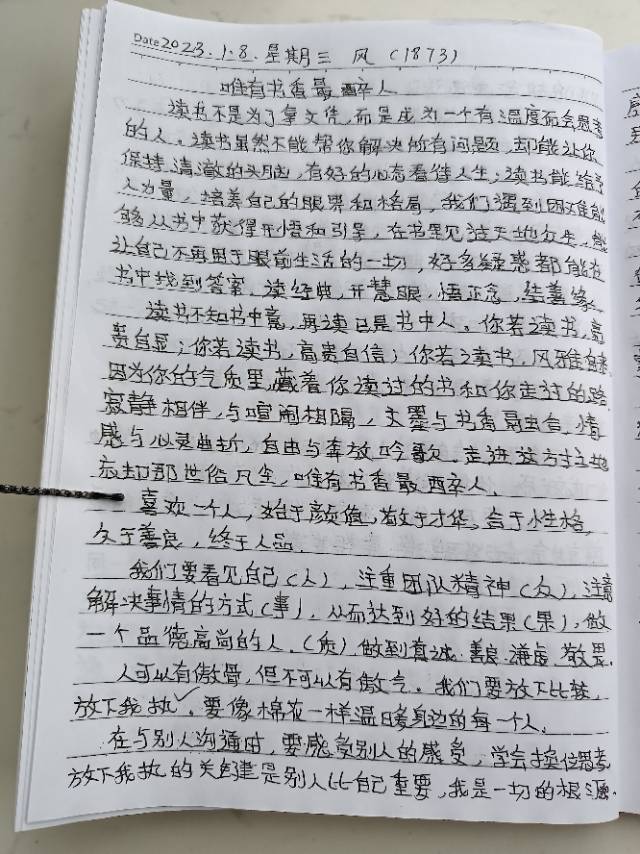 Date 2023.1.8.星期三 风 (1873)
唯有书香最醉人
读书不是为了拿文凭,而是成为一个有温度而会思考
的人。读书虽然不能帮你解决所有问题,却能让你
保持清澈的头脑,有好的心态看待人生;读书能给予
人力量,培养自己的眼界和格局,我们遇到困难能
够从书中获得开悟和引导,在书里见过天地众生,能
让自己不再困于眼前生活的一切,好多疑惑都能在
书中找到答案,读经典,开慧眼,悟正念,结善缘
读书不知书中意,再读已是书中人。你若读书,高
贵自显;你若读书,高贵自信;你若读书,风雅自来
因为你的气质里,藏着你读过的书和你走过的路
寂静相伴,与喧闹相隔,文墨与书香融合,情
感与心灵曲折,自由与奔放吟歌,走进这方寸之地
忘却那世俗凡尘,唯有书香最醉人。
喜欢一个人,始于颜值,敬于才华,合于性格,
久于善良,终于人品。
我们要看见自己(人),注重团队精神(众),注意
解决事情的方式(事),从而达到好的结果(果),做
一个品德高尚的人。(质)做到真诚.善良.谦虚.敬畏.
人可以有傲骨,但不可以有傲气。我们要放下比较,
放下我执,要像棉花一样温暖身边的每一个人。
在与别人沟通时,要感受别人的感受,学会换位思考
放下我执的关键是别人比自己重要,我是一切的根源.